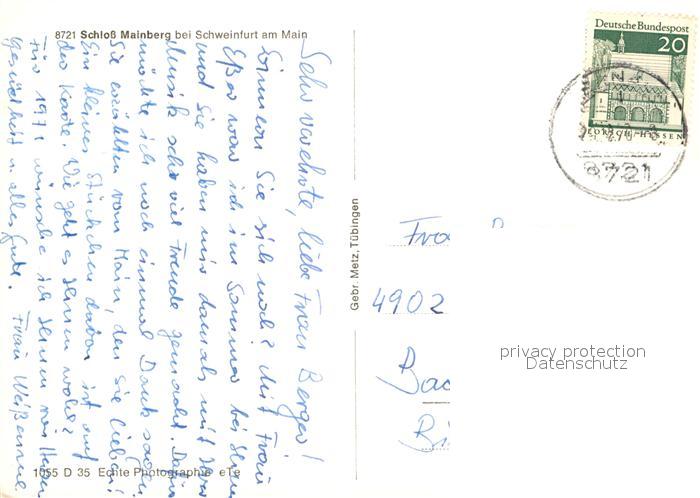 8721 Schloß Mainberg bei Schweinfurt am Main
Sehr verehrte, liebe Frau Berger!
Erinnern Sie sich noch? Mit Frau
Eßer war ich im Sommer bei Ihnen
und Sie haben mir damals mit Ihrer
Musik sehr viel Freude gemacht. Dafür
möchte ich noch einmal Dank sagen.
Sie erzählten vom Main, den Sie lieben!
Ein kleines Stückchen davon ist auf
der Karte. Wie geht es Ihnen wohl?
Für 1971 wünsche ich Ihnen von Herzen
Gesundheit u. alles Gute. Frau
1055 D 35 Echte Photographie eTe
Gebr. Metz, Tübingen
Deutsche Bundespost
20
LORSCH·HESSEN
8721
4902
privacy protection
Datenschutz